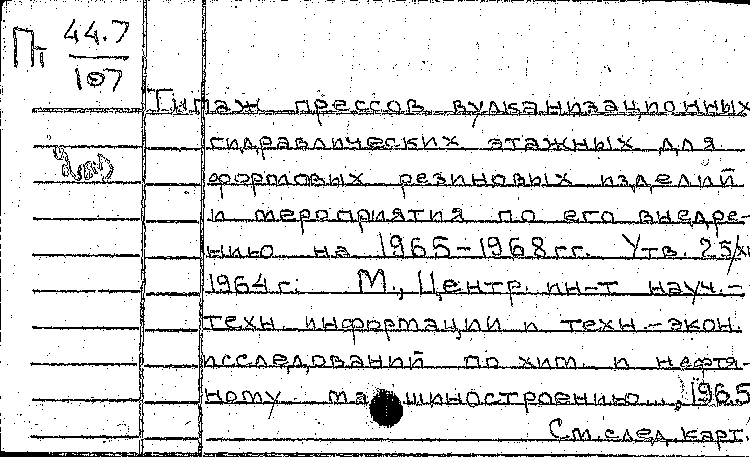 Пт 44.7
107
Типаж прессов вулканизационных
гидравлических этажных для
формовых резиновых изделий
и мероприятия по его внедре-
нию на 1965-1968 гг. Утв. 25/XI
1964 г. М., Центр. ин-т науч.-
техн. информации и техн.-экон.
исследований по хим. и нефтя-
ному машиностроению, 1965
См. след. карт.